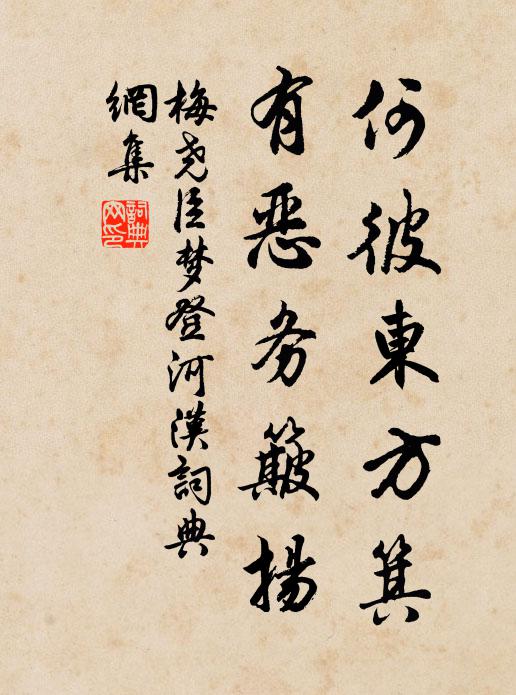 何彼東方箕
有恶务簸揚
梅尧臣梦登河漢詞典
網集
詞典
网印